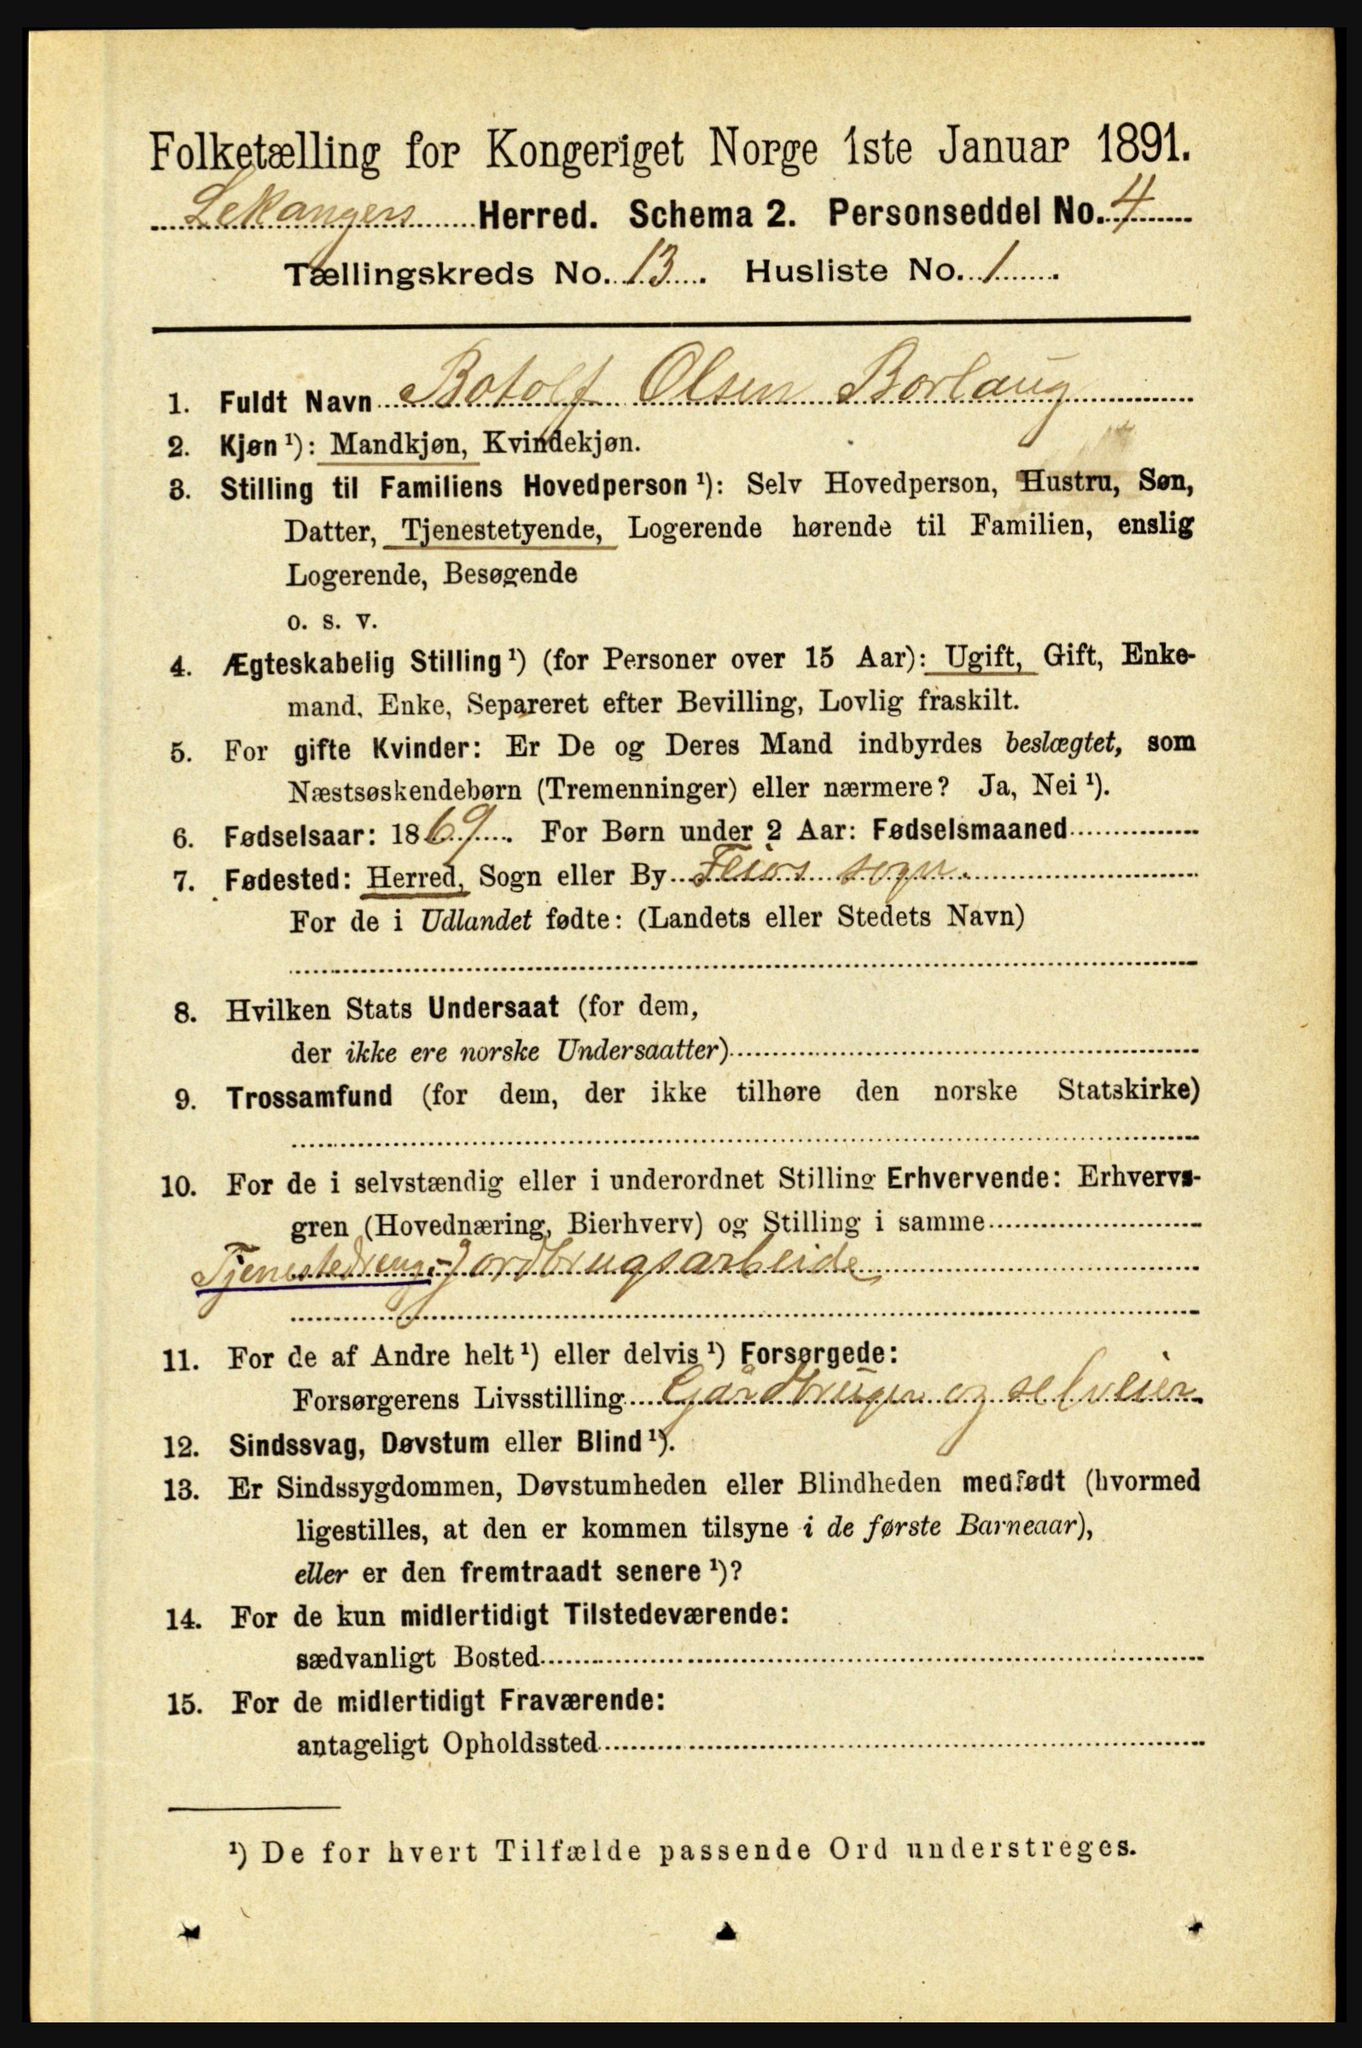 Folketælling for Kongeriget Norge 1ste Januar 1891.
Lekangers Herred. Schema 2. Personseddel No. 4
Tællingskreds No. 13. Husliste No. 1
1. Fuldt Navn Botolf Olsen Borlaug
2. Kjøn ¹): Mandkjøn, Kvindekjøn.
3. Stilling til Familiens Hovedperson ¹): Selv Hovedperson, Hustru, Søn,
Datter, Tjenestetyende, Logerende hørende til Familien, enslig
Logerende, Besøgende
o. s. v.
4. Ægteskabelig Stilling ¹) (for Personer over 15 Aar): Ugift, Gift, Enke-
mand, Enke, Separeret efter Bevilling, Lovlig fraskilt.
5. For gifte Kvinder: Er De og Deres Mand indbyrdes beslægtet, som
Næstsøskendebørn (Tremenninger) eller nærmere? Ja, Nei ¹).
6. Fødselsaar: 1869. For Børn under 2 Aar: Fødselsmaaned
7. Fødested: Herred, Sogn eller By Feios sogn.
For de i Udlandet fødte: (Landets eller Stedets Navn)
8. Hvilken Stats Undersaat (for dem,
der ikke ere norske Undersaatter)
9. Trossamfund (for dem, der ikke tilhøre den norske Statskirke)
10. For de i selvstændig eller i underordnet Stilling Erhvervende: Erhvervs-
gren (Hovednæring, Bierhverv) og Stilling i samme
Tjenestedreng - Jordbrugsarbeide
11. For de af Andre helt ¹) eller delvis ¹) Forsørgede:
Forsørgerens Livsstilling Gårdbruger og selveier
12. Sindssvag, Døvstum eller Blind ¹).
13. Er Sindssygdommen, Døvstumheden eller Blindheden medfødt (hvormed
ligestilles, at den er kommen tilsyne i de første Barneaar),
eller er den fremtraadt senere ¹)?
14. For de kun midlertidigt Tilstedeværende:
sædvanligt Bosted
15. For de midlertidigt Fraværende:
antageligt Opholdssted
¹) De for hvert Tilfælde passende Ord understreges.